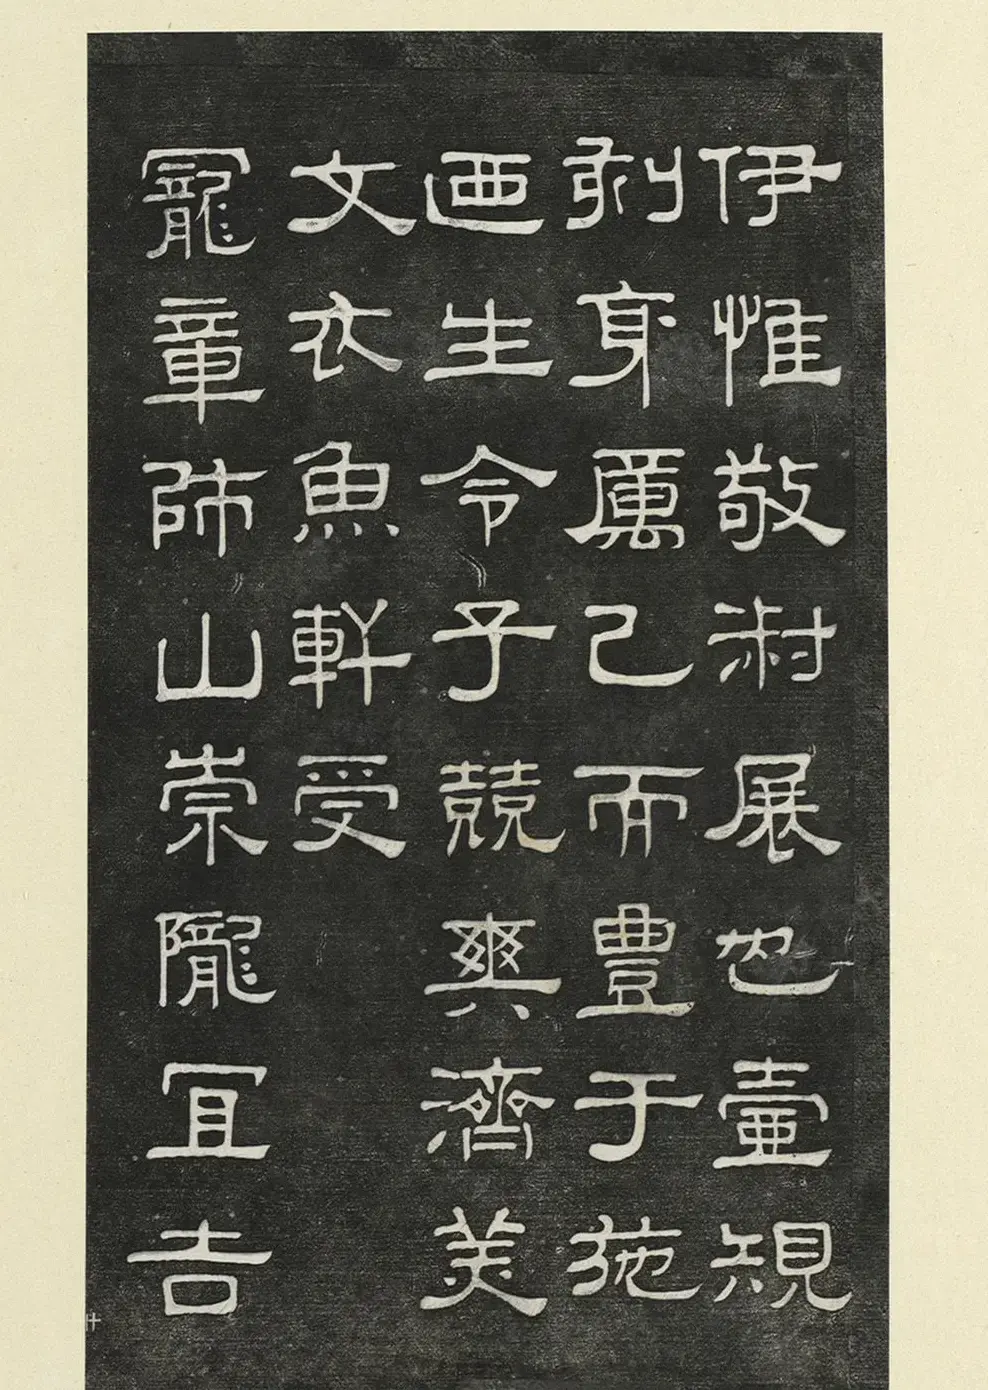 伊惟敬叔展也壼規
刻身厲己而豐于施
迺生令子競爽濟美
文衣魚軒受
寵章師山崇隴宜吉